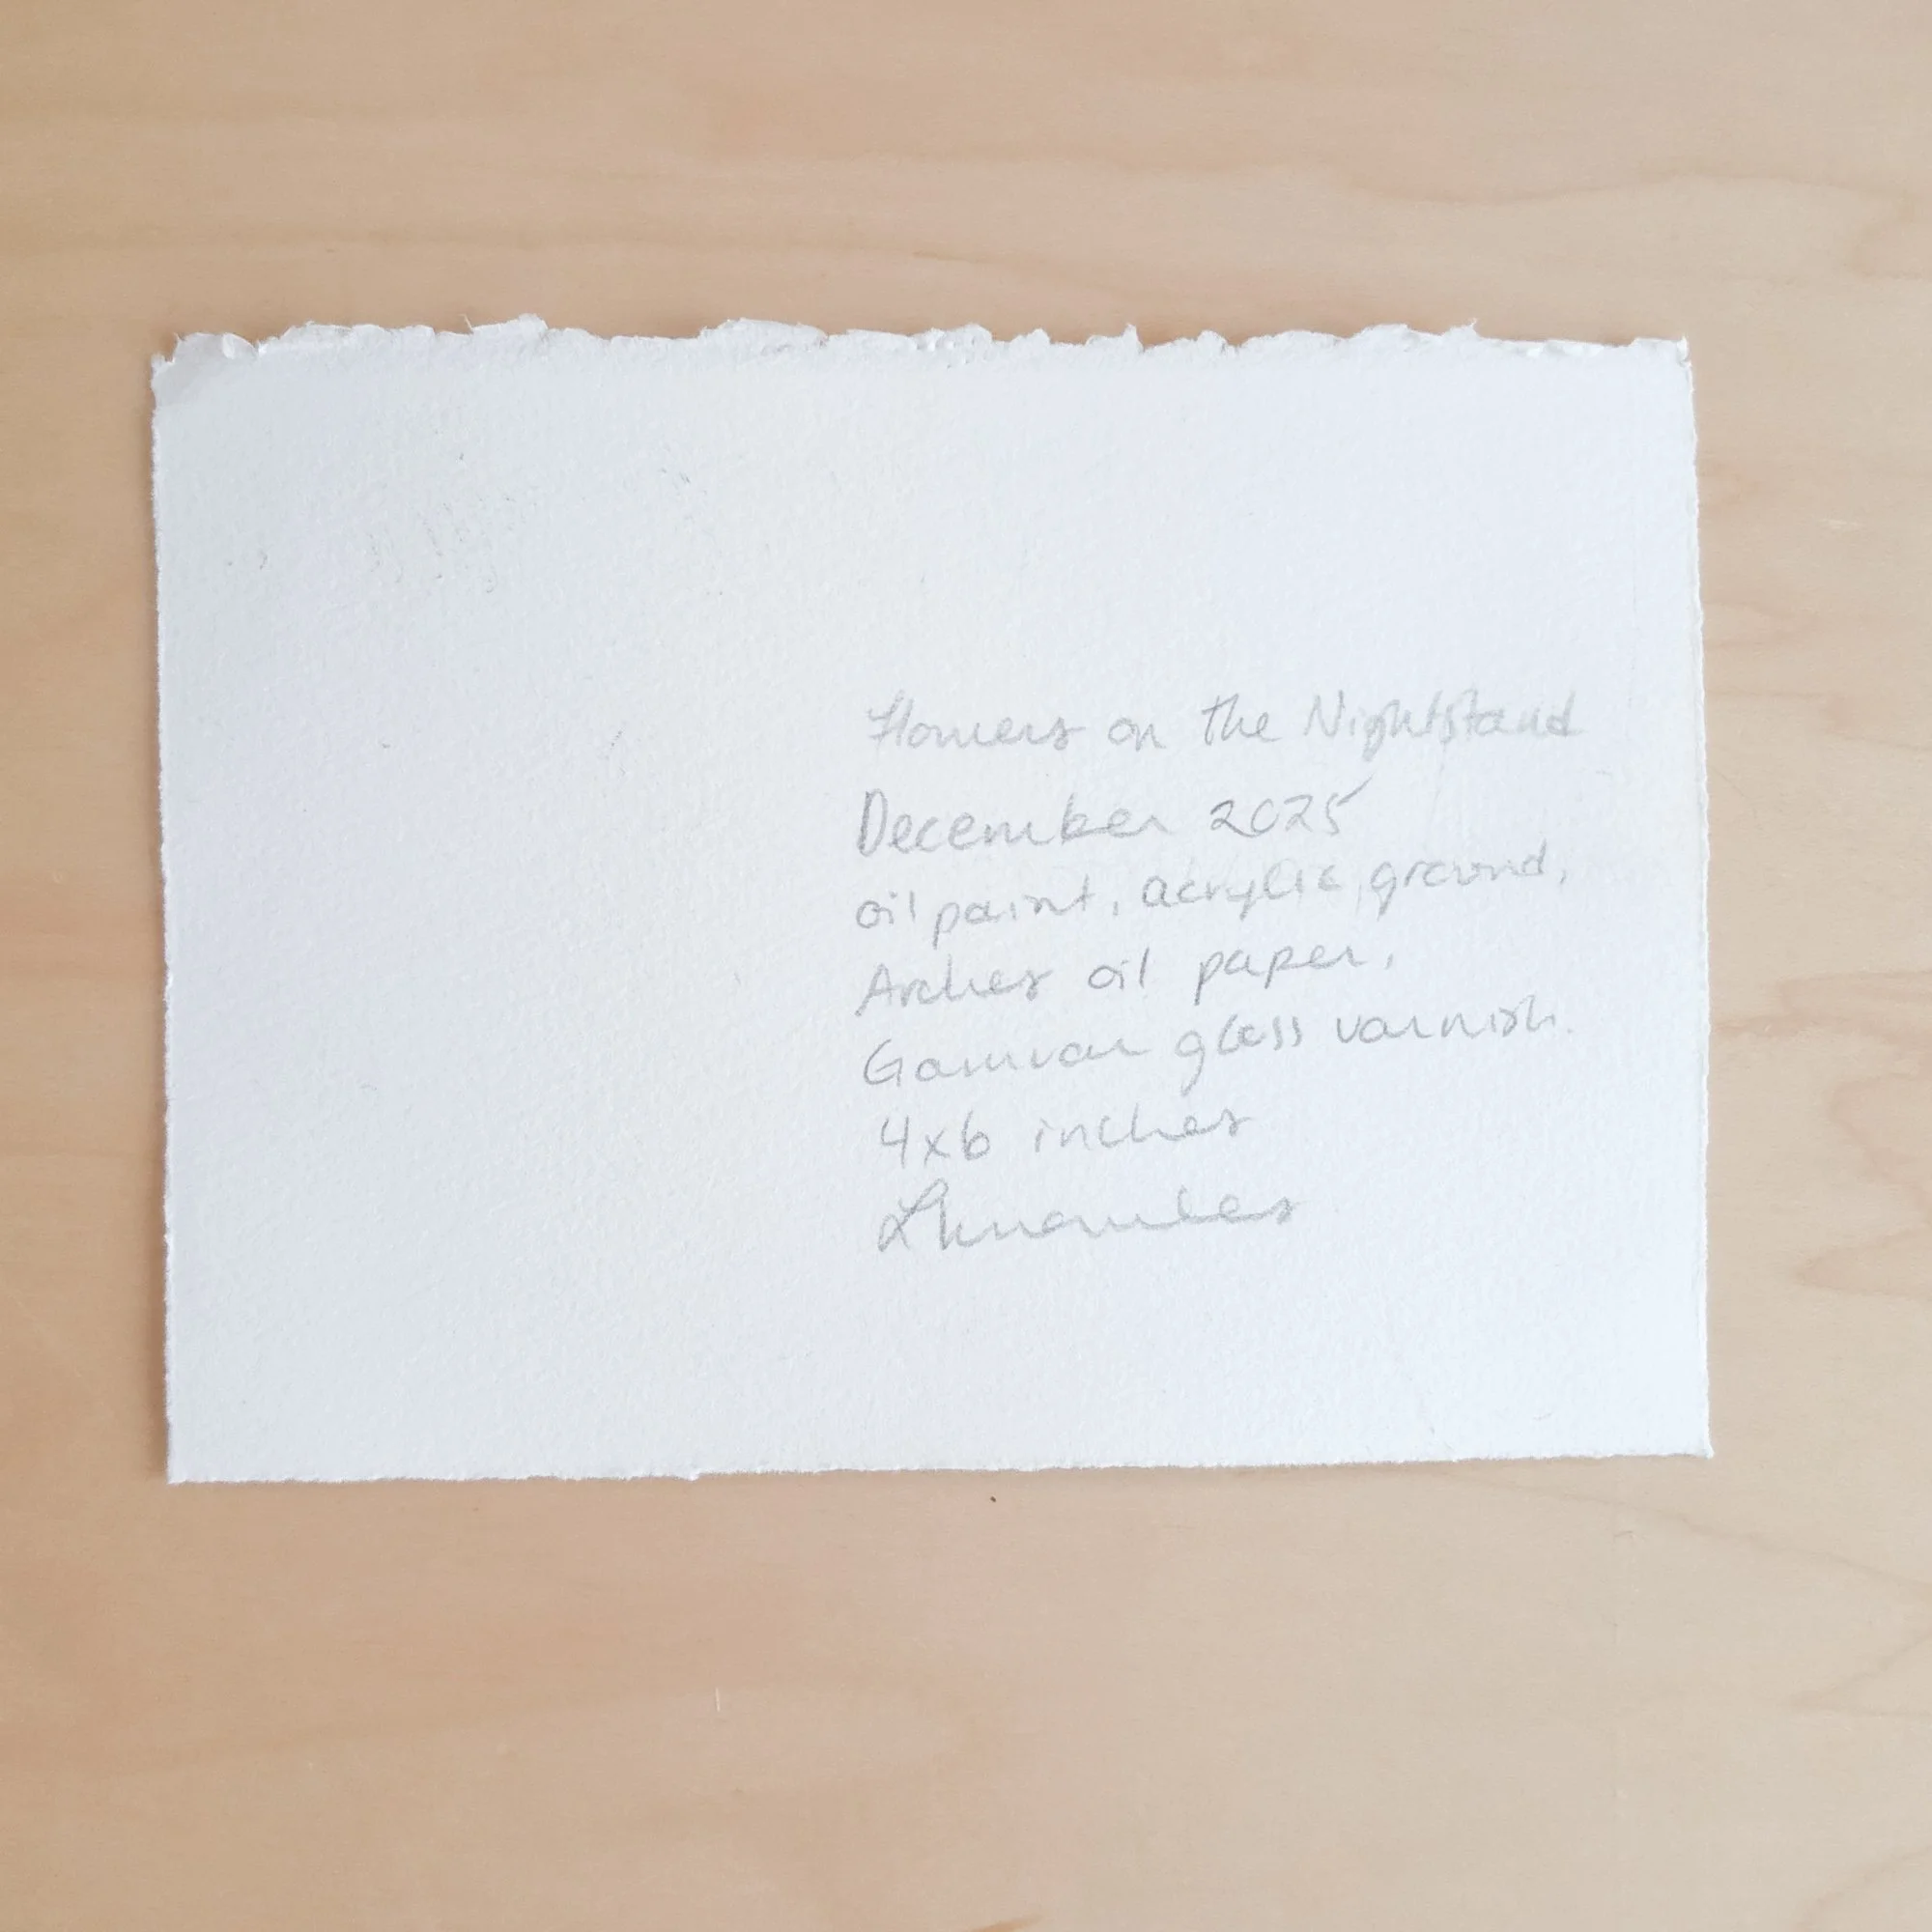 Flowers on the Nightstand
December 2025
oil paint, acrylic ground,
Arches oil paper,
Gamvar gloss varnish.
4x6 inches